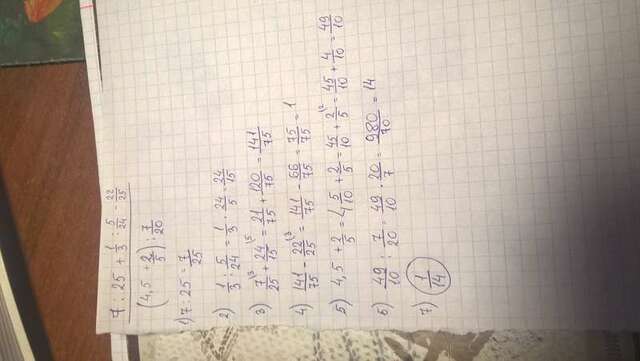 7 : 25 + 1/3 : 5/24 - 22/25
(4,5 + 2/5) : 7/20
1) 7 : 25 = 7/25
2) 1/3 : 5/24 = 1/3 · 24/5 = 24/15
3) 7/25 \3 + 24/15 \5 = 21/75 + 120/75 = 141/75
4) 141/75 - 22/25 \3 = 141/75 - 66/75 = 75/75 = 1
5) 4,5 + 2/5 = 4 5/10 + 2/5 = 45/10 + 2/5 \2 = 45/10 + 4/10 = 49/10
6) 49/10 : 7/20 = 49/10 · 20/7 = 980/70 = 14
7) 1/14